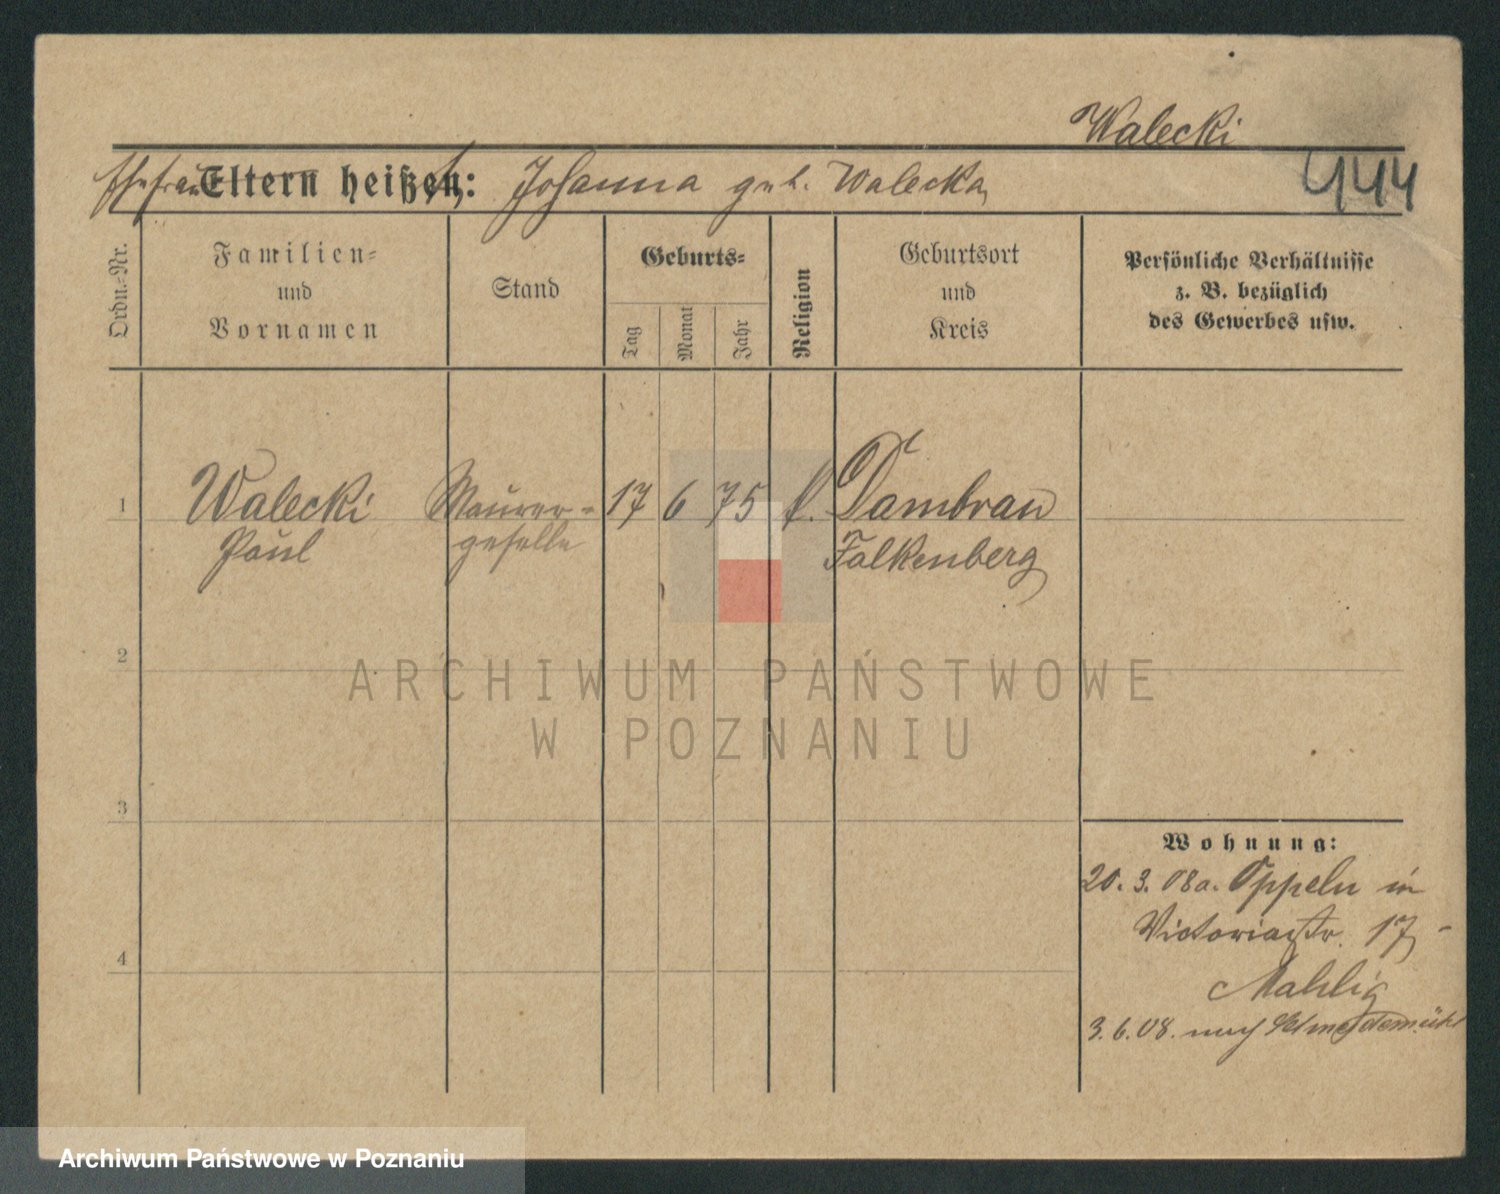 Walecki
Ehefrau Eltern heißen: Johanna geb. Walecka
444
Ordn.-Nr.
Familien-
und
Vornamen
Stand
Geburts-
Tag
Monat
Jahr
Religion
Geburtsort
und
Kreis
Persönliche Verhältnisse
z. B. bezüglich
des Gewerbes usw.
1
Walecki
Paul
Maurer-
geselle
17 6 75 k.
Dambrau
Falkenberg
2
ARCHIWUM PAŃSTWOWE
W POZNANIU
3
Wohnung:
20. 3. 08 a. Oppeln in
Victoriastr. 17
4
Mahlig
3. 6. 08. nach Schneidemühl
Archiwum Państwowe w Poznaniu